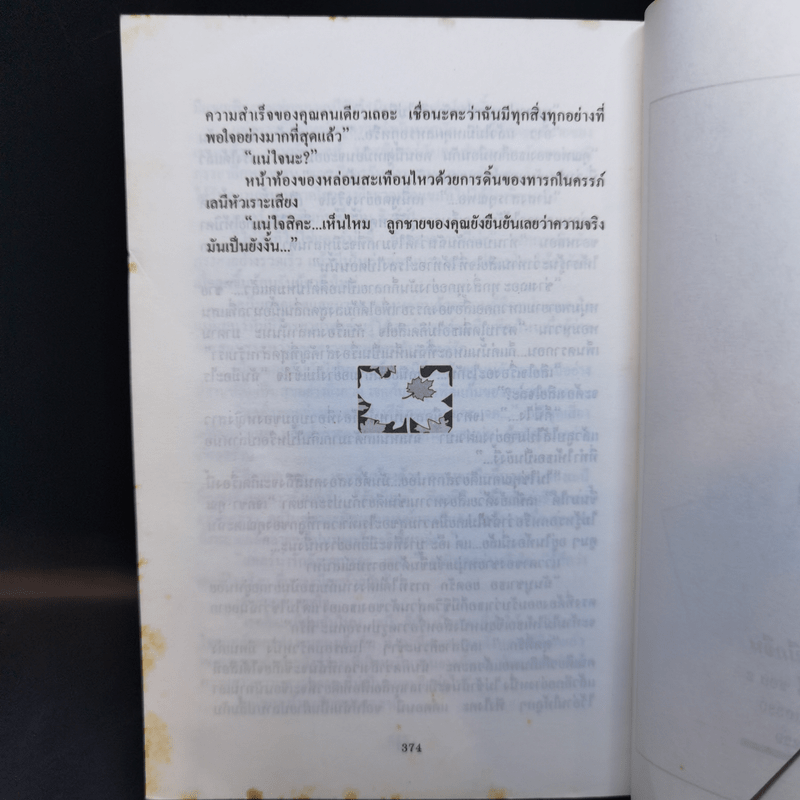 ความสำเร็จของคุณคนเดียวเถอะ เชื่อนะคะว่าฉันมีทุกสิ่งทุกอย่างที่
พอใจอย่างมากที่สุดแล้ว”
“แน่ใจนะ?”
หน้าท้องของหล่อนสะเทือนไหวด้วยการดิ้นของทารกในครรภ์
เลนีหัวเราะเสียง
“แน่ใจสิคะ...เห็นไหม ลูกชายของคุณยังยืนยันเลยว่าความจริง
มันเป็นยังงั้น...”
374